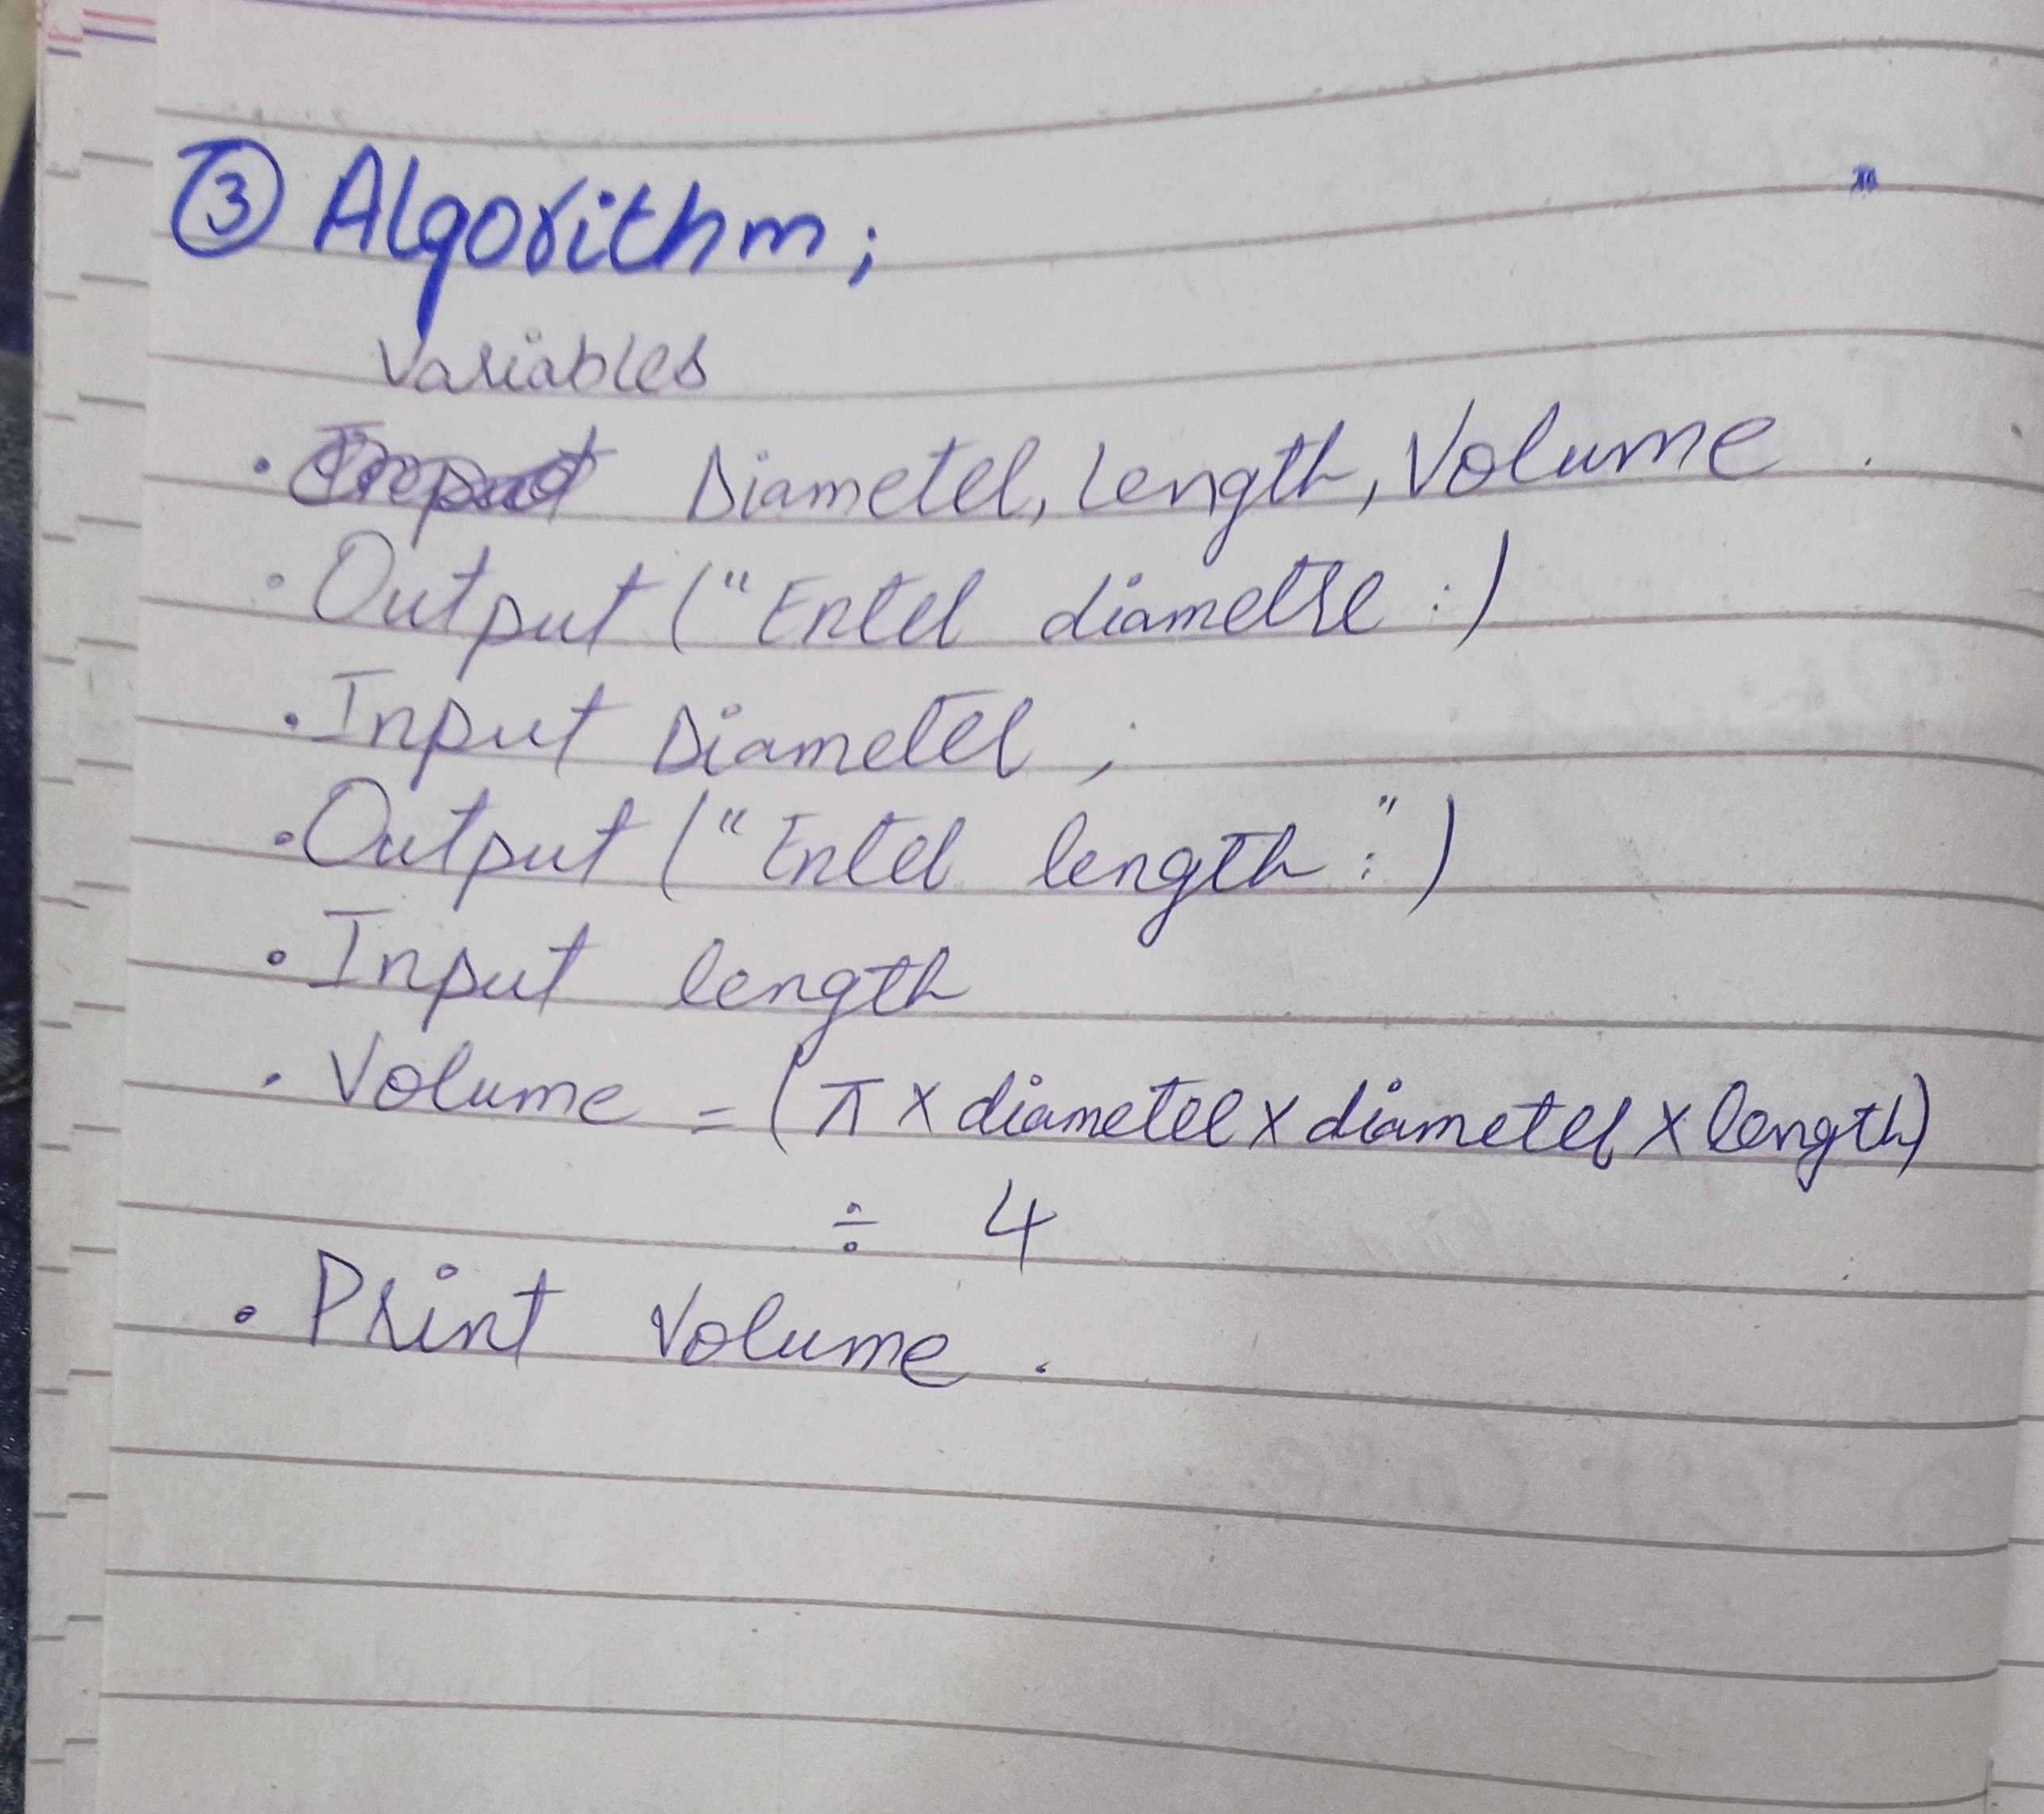 ③ Algorithm;
Variables
• Diameter, Length, Volume.
• Output ("Enter diametre:)
• Input Diameter;
• Output ("Enter length:")
• Input length
• Volume = (π × diameter × diameter × length)
÷ 4
• Print Volume.